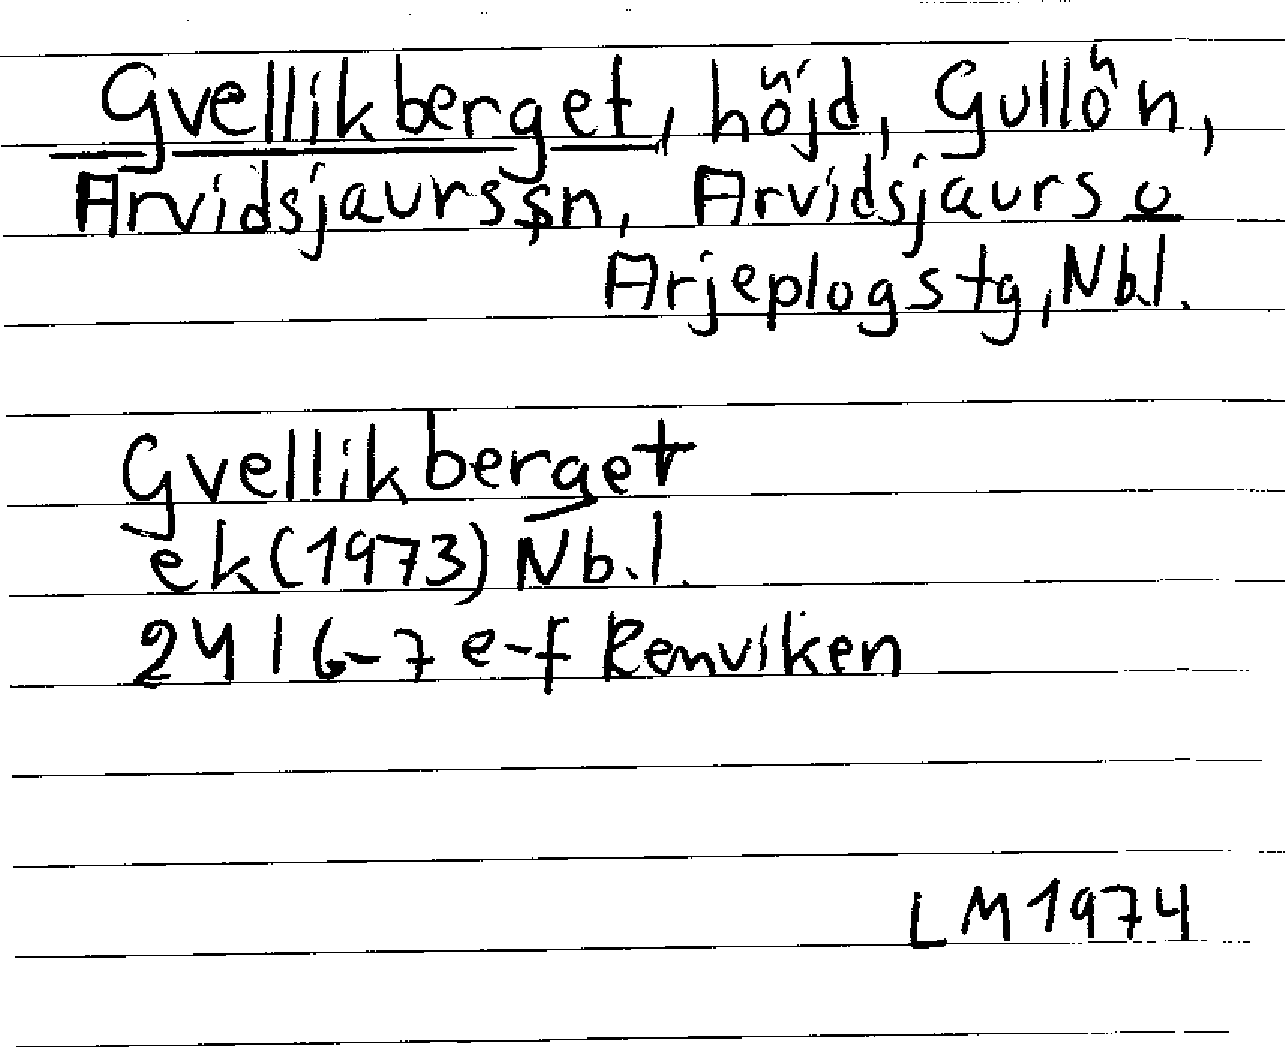 Gvellikberget, höjd, Gullön,
Arvidsjaurs sn, Arvidsjaurs o
Arjeplogs tg, Nb.l.
Gvellikberget
ek (1973) Nb.l.
2416-7 e-f Renviken
LM 1974